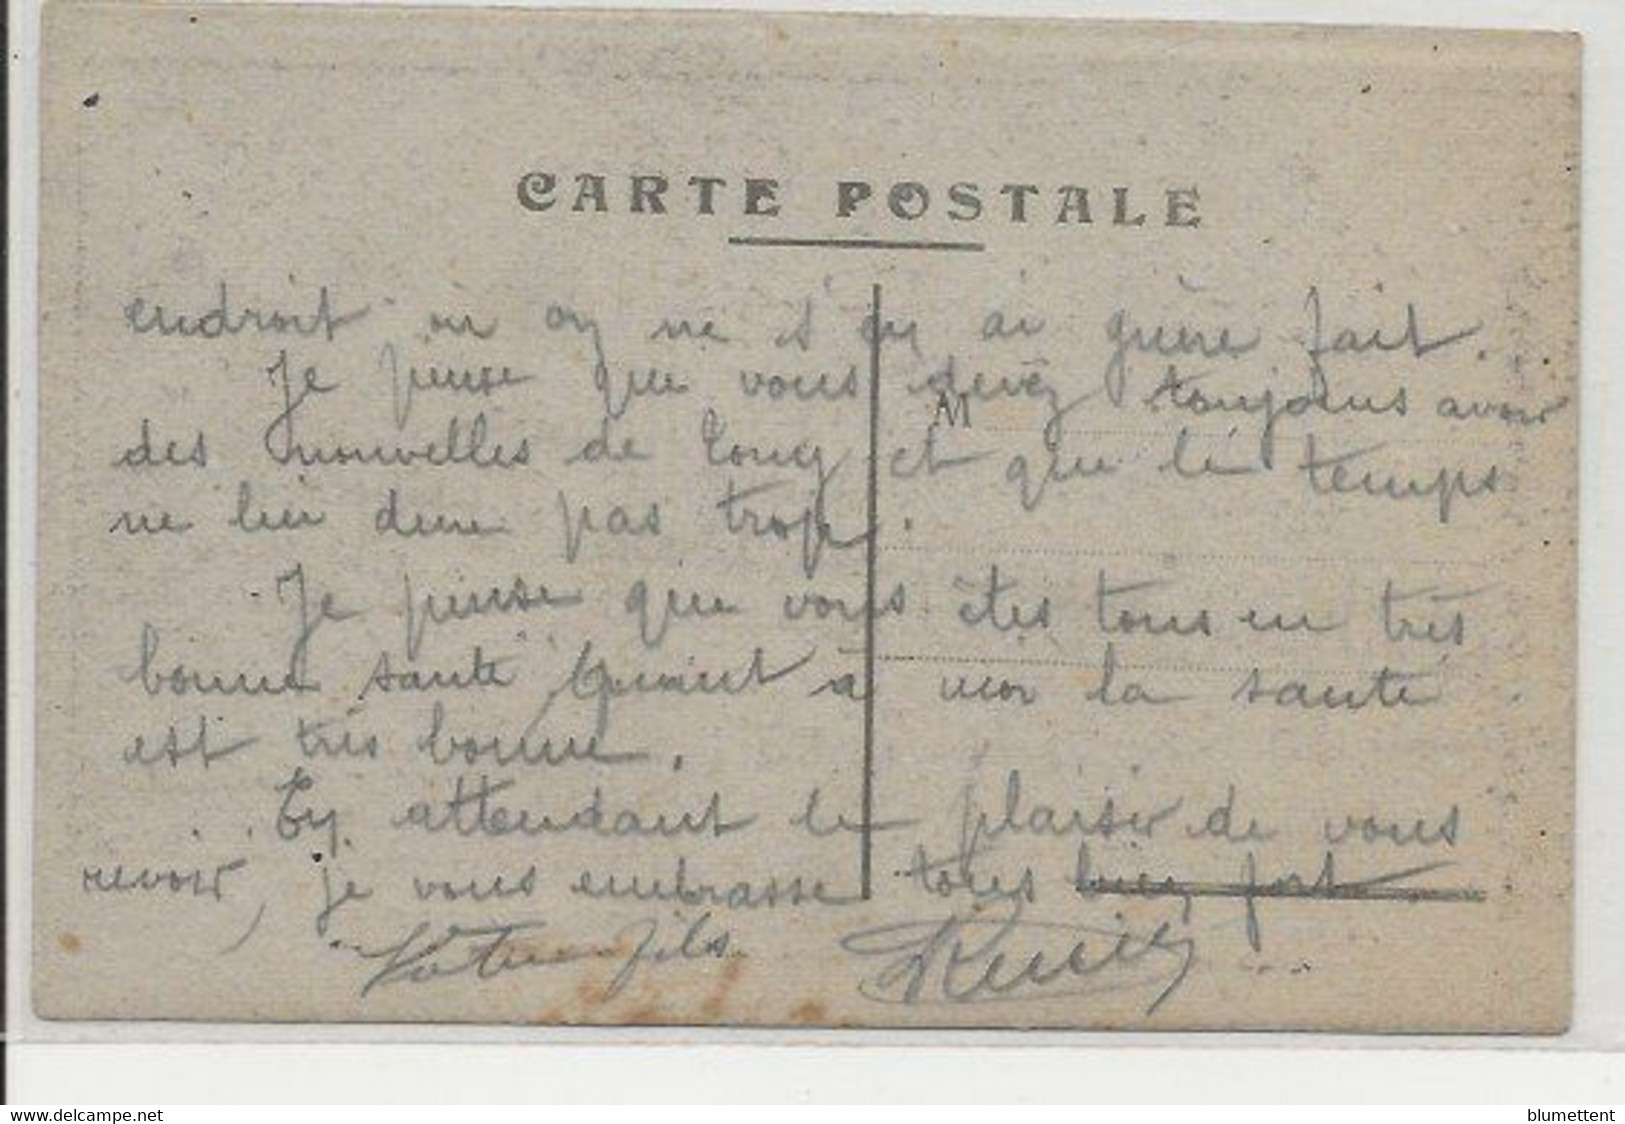 CARTE POSTALE
endroit ou on ne s'en ai guère fait.
Je pense que vous devez toujours avoir
M
des nouvelles de Tony et que le temps
ne lui dure pas trop.
Je pense que vous êtes tous en très
bonne santé Quant à moi la santé
est très bonne.
En attendant le plaisir de vous
revoir, je vous embrasse tous bien fort.
Votre fils
www.delcampe.net
blumettent